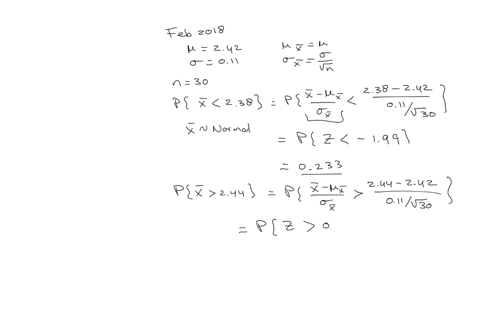 Feb 2018
μ = 2.42    μx̄ = μ
σ = 0.11    σx̄ = σ/√n
n = 30
P{ x̄ < 2.38} = P{ (x̄ - μx̄)/σx̄ < (2.38 - 2.42)/(0.11/√30) }
x̄ ~ Normal
= P{ Z < - 1.99}
= 0.233
P{ x̄ > 2.44} = P{ (x̄ - μx̄)/σx̄ > (2.44 - 2.42)/(0.11/√30) }
= P{ Z > 0